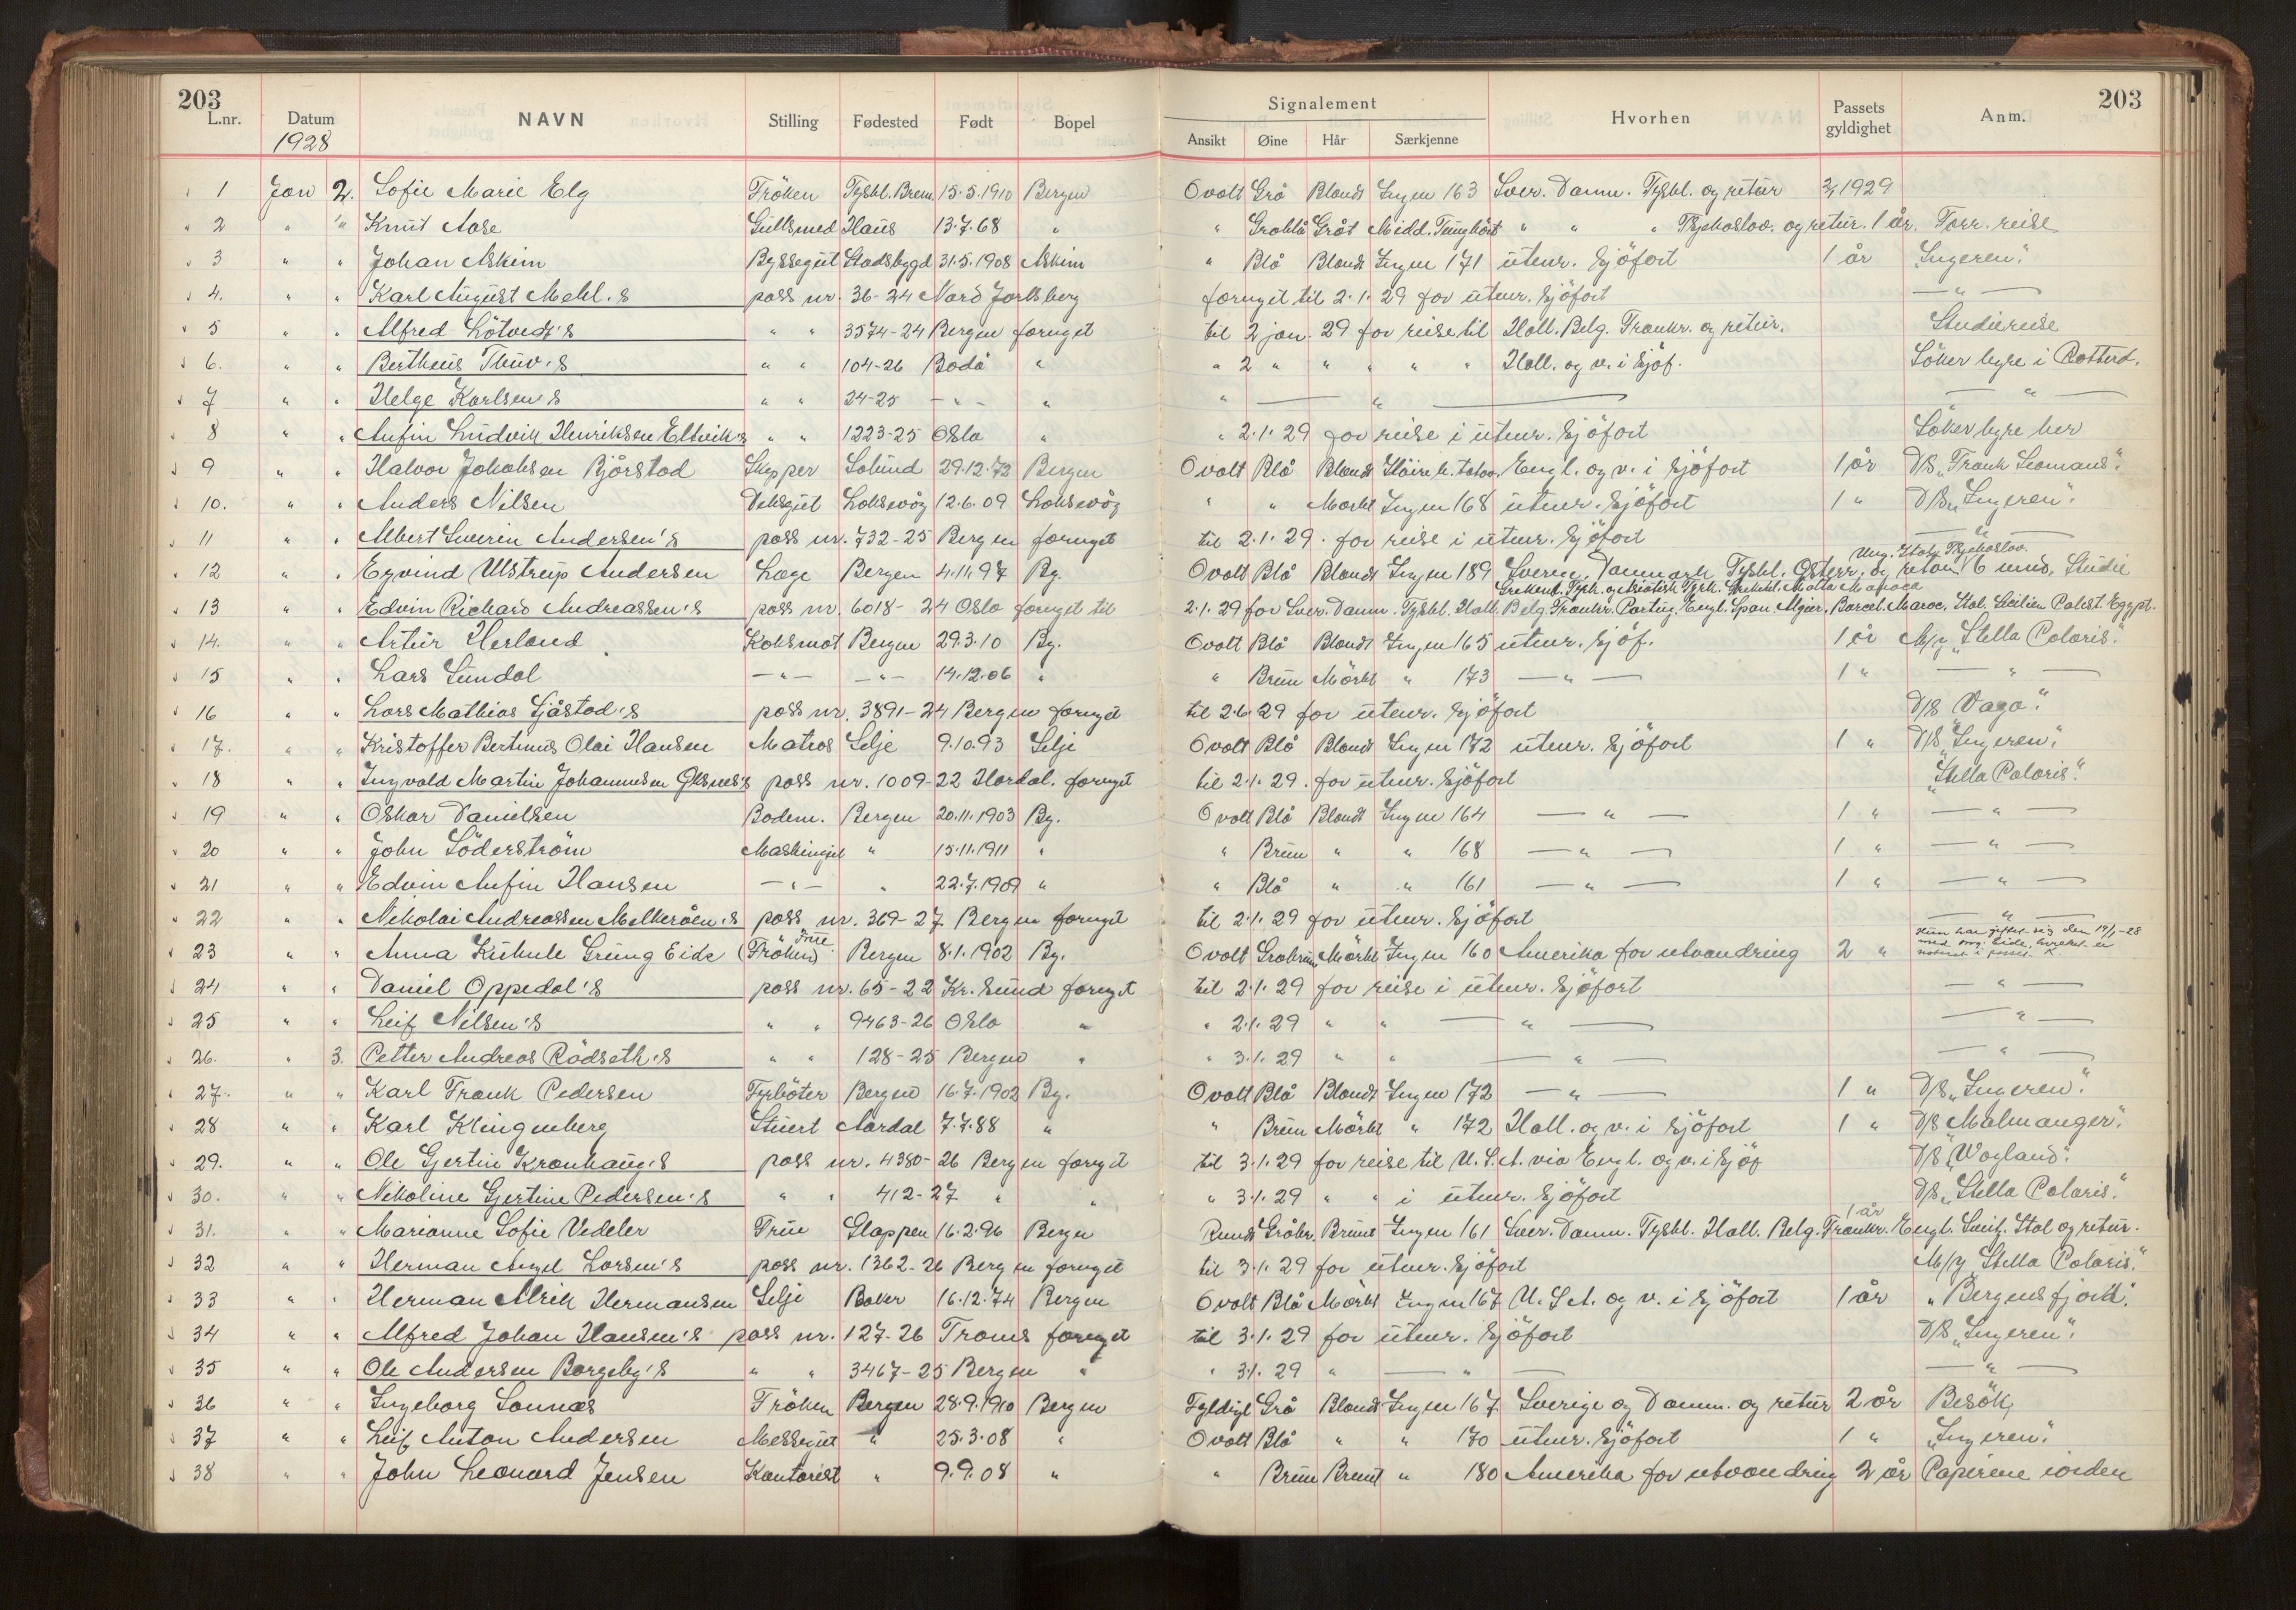 203
L.nr. Datum NAVN Stilling Fødested Født Bopel
Signalement Hvorhen Passets gyldighet Anm. 203
Ansikt Øine Hår Særkjenne
1928
1 Jan 2. Sofie Marie Elg Fröken Tyskl. Brem. 15.5.1910 Bergen Ovalt Grå Blondt Ingen 163 Sver. Danm. Tyskl. og retur 2/1 1929
2 " " Knut Aase Gullsmed Haus 13.7.68 " " Gråblå Gråt Midd. Tunghört " " " Tsjekoslov. og retur. 1 år. Forr. reise
3 " " Johan Askim Byssegut Stadsbygd 31.5.1908 Askim " Blå Blondt Ingen 171 utenr. Sjöfart 1 år "Ingeren".
4. " " Karl August Mehl.s pass nr. 36-24 Nord Jarlsberg fornyet til 2.1.29 for utenr. Sjöfart — " —
5 " " Alfred Lötvedt's " " 3574-24 Bergen fornyet til 2 jan. 29 for reise til Holl. Belg. Frankr. og retur. Studiereise
6. " " Bertheus Thuv.s " " 104-26 Bodö " " 2 " " " " " Holl. og v. i Sjöf. Söker hyre i Rotterd.
7 " " Helge Karlsen's " " 24-25 - " - " " — " — — " —
8 " " Anfin Ludvik Henriksen Eltvik's " " 1223-25 Oslo " " 2.1.29 for reise i utenr. Sjöfart Söker hyre her
9 " " Halvor Jakobsen Bjørstad Skipper Solund 29.12.72 Bergen Ovalt Blå Blondt Höire h. tatov. Engl. og v. i Sjöfart 1 år D/S "Frank Seamans".
10. " " Anders Nilsen Deksgut Laksevåg 12.6.09 Laksevåg " " Mørkt Ingen 168 utenr. Sjöfart 1 " D/S "Ingeren".
11 " " Albert Severin Andersen's pass nr. 732-25 Bergen fornyet til 2.1.29. for reise i utenr. Sjöfart — " —
Ung. Italy Tsjekoslov.
12 " " Eyvind Ulstrup Andersen Læge Bergen 4.11.97 Bg. Ovalt Blå Blondt Ingen 189 Sverige, Danmark Tyskl. Østerr. og retour 6 mnd. Studie
13 " " Edvin Richard Andreassen's pass nr. 6018-24 Oslo fornyet til 2.1.29 for Sver. Danm. Tyskl. Holl. Belg. Frankr. Portug. Engl. Span. Algier, Barcel. Maroc, Ital. Sicilien Palest. Egypt.
14. " " Artur Herland Koksmat Bergen 29.3.10 Bg. Ovalt Blå Blondt Ingen 165 utenr. Sjöf. 1 år M/y "Stella Polaris".
15 " " Lars Sundal — " — — " — 14.12.06 " " Brun Mörkt " 173 — " — 1 " — " —
16 " " Lars Mathias Sjåstad's pass nr. 3891-24 Bergen fornyet til 2.6.29 for utenr. Sjöfart D/S Vaga".
17. " " Kristoffer Bertinus Olai Hansen Matros Selje 9.10.93 Selje Ovalt Blå Blondt Ingen 172 utenr. Sjöfart 1 " D/S "Ingeren".
18 " " Ingvald Martin Johannesen Oksnes's pass nr. 1009-22 Hordal. fornyet til 2.1.29. for utenr. Sjöfart "Stella Polaris".
19 " " Oskar Danielsen Badem. Bergen 20.11.1903 Bg. Ovalt Blå Blondt Ingen 164 — " — 1 " — " —
20 " " John Söderström Maskingut " 15.11.1911 " " Brun " " 168 — " — 1 " — " —
21 " " Edvin Anfin Hansen — " — " 22.7.1909 " " Blå " " 161 — " — 1 " — " —
22 " " Nikolai Andreassen Melkeråen's pass nr. 369-27 Bergen fornyet til 2.1.29 for utenr. Sjöfart — " —
23 " " Anna Grung Eide (Fröken) Frue Bergen 8.1.1902 Bg. Ovalt Gråbrun Mörkt Ingen 160 Amerika for utvandring 2 " Hun har giftet sig den 14/1-28 med Eide, hvilket er noteret i passet.
24 " " Daniel Oppedal's pass nr. 65-22 Kr. Sund fornyet til 2.1.29 for reise i utenr. Sjöfart — " —
25 " " Leif Nilsen's " " 9463-26 Oslo " " 2.1.29 " " — " — — " —
26. " 3. Petter Andreas Rödseth's " " 128-25 Bergen " " 3.1.29 " " — " — — " —
27. " " Karl Frank Pedersen Fyrböter Bergen 16.7.1902 Bg. Ovalt Blå Blondt Ingen 172 — " — 1 " D/S "Ingeren".
28 " " Karl Klingenberg Stuert Aardal 7.7.88 " " Brun Mörkt " 172 Holl. og v. i Sjöfart 1 " D/S Malmanger".
29. " " Ole Gjertin Kronhaug's pass nr. 4380-26 Bergen fornyet til 3.1.29 for reise til U.S.A. via Engl. og v. i Sjöf D/S "Vogland".
30. " " Nikoline Gjertine Pedersen's " " 412-27 " " " 3.1.29 " " i utenr. Sjöfart D/S "Stella Polaris."
31. " " Marianne Sofie Vedeler Frue Glappen 16.2.96 Bergen Rundt Gråbr. Brunt Ingen 161 Sver. Danm. Tyskl. Holl. Belg. Frankr. Engl. Sveitz. Ital og retur. 1 år
32 " " Herman Angel Larsen's pass nr. 1362-26 Bergen fornyet til 3.1.29 for utenr. Sjöfart M/y Stella Polaris".
33 " " Herman Alrik Hermansen Selje Baker 16.12.74 Bergen Ovalt Blå Mörkt Ingen 167 U.S.A. og v. i Sjöfart 1 år "Bergensfjord".
34 " " Alfred Johan Hansen's pass nr. 127-26 Troms fornyet til 3.1.29 for utenr. Sjöfart D/S "Ingeren".
35 " " Ole Andersen Borgeby's " " 3467-25 Bergen " " 3.1.29 " — " — — " —
36 " " Ingeborg Sonnæs Fröken Bergen 28.9.1910 Bergen Fyldigt Grå Blondt Ingen 167 Sverige og Danm. og retur 2 år Besök,
37 " " Leif Anton Andersen Messegut " 25.3.08 " Ovalt Blå " " 170 utenr. Sjöfart 1 " "Ingeren".
38 " " John Leonard Jensen Kontorist " 9.9.08 " " Brun Brunt " 180 Amerika for utvandring 2 år Papirene iorden